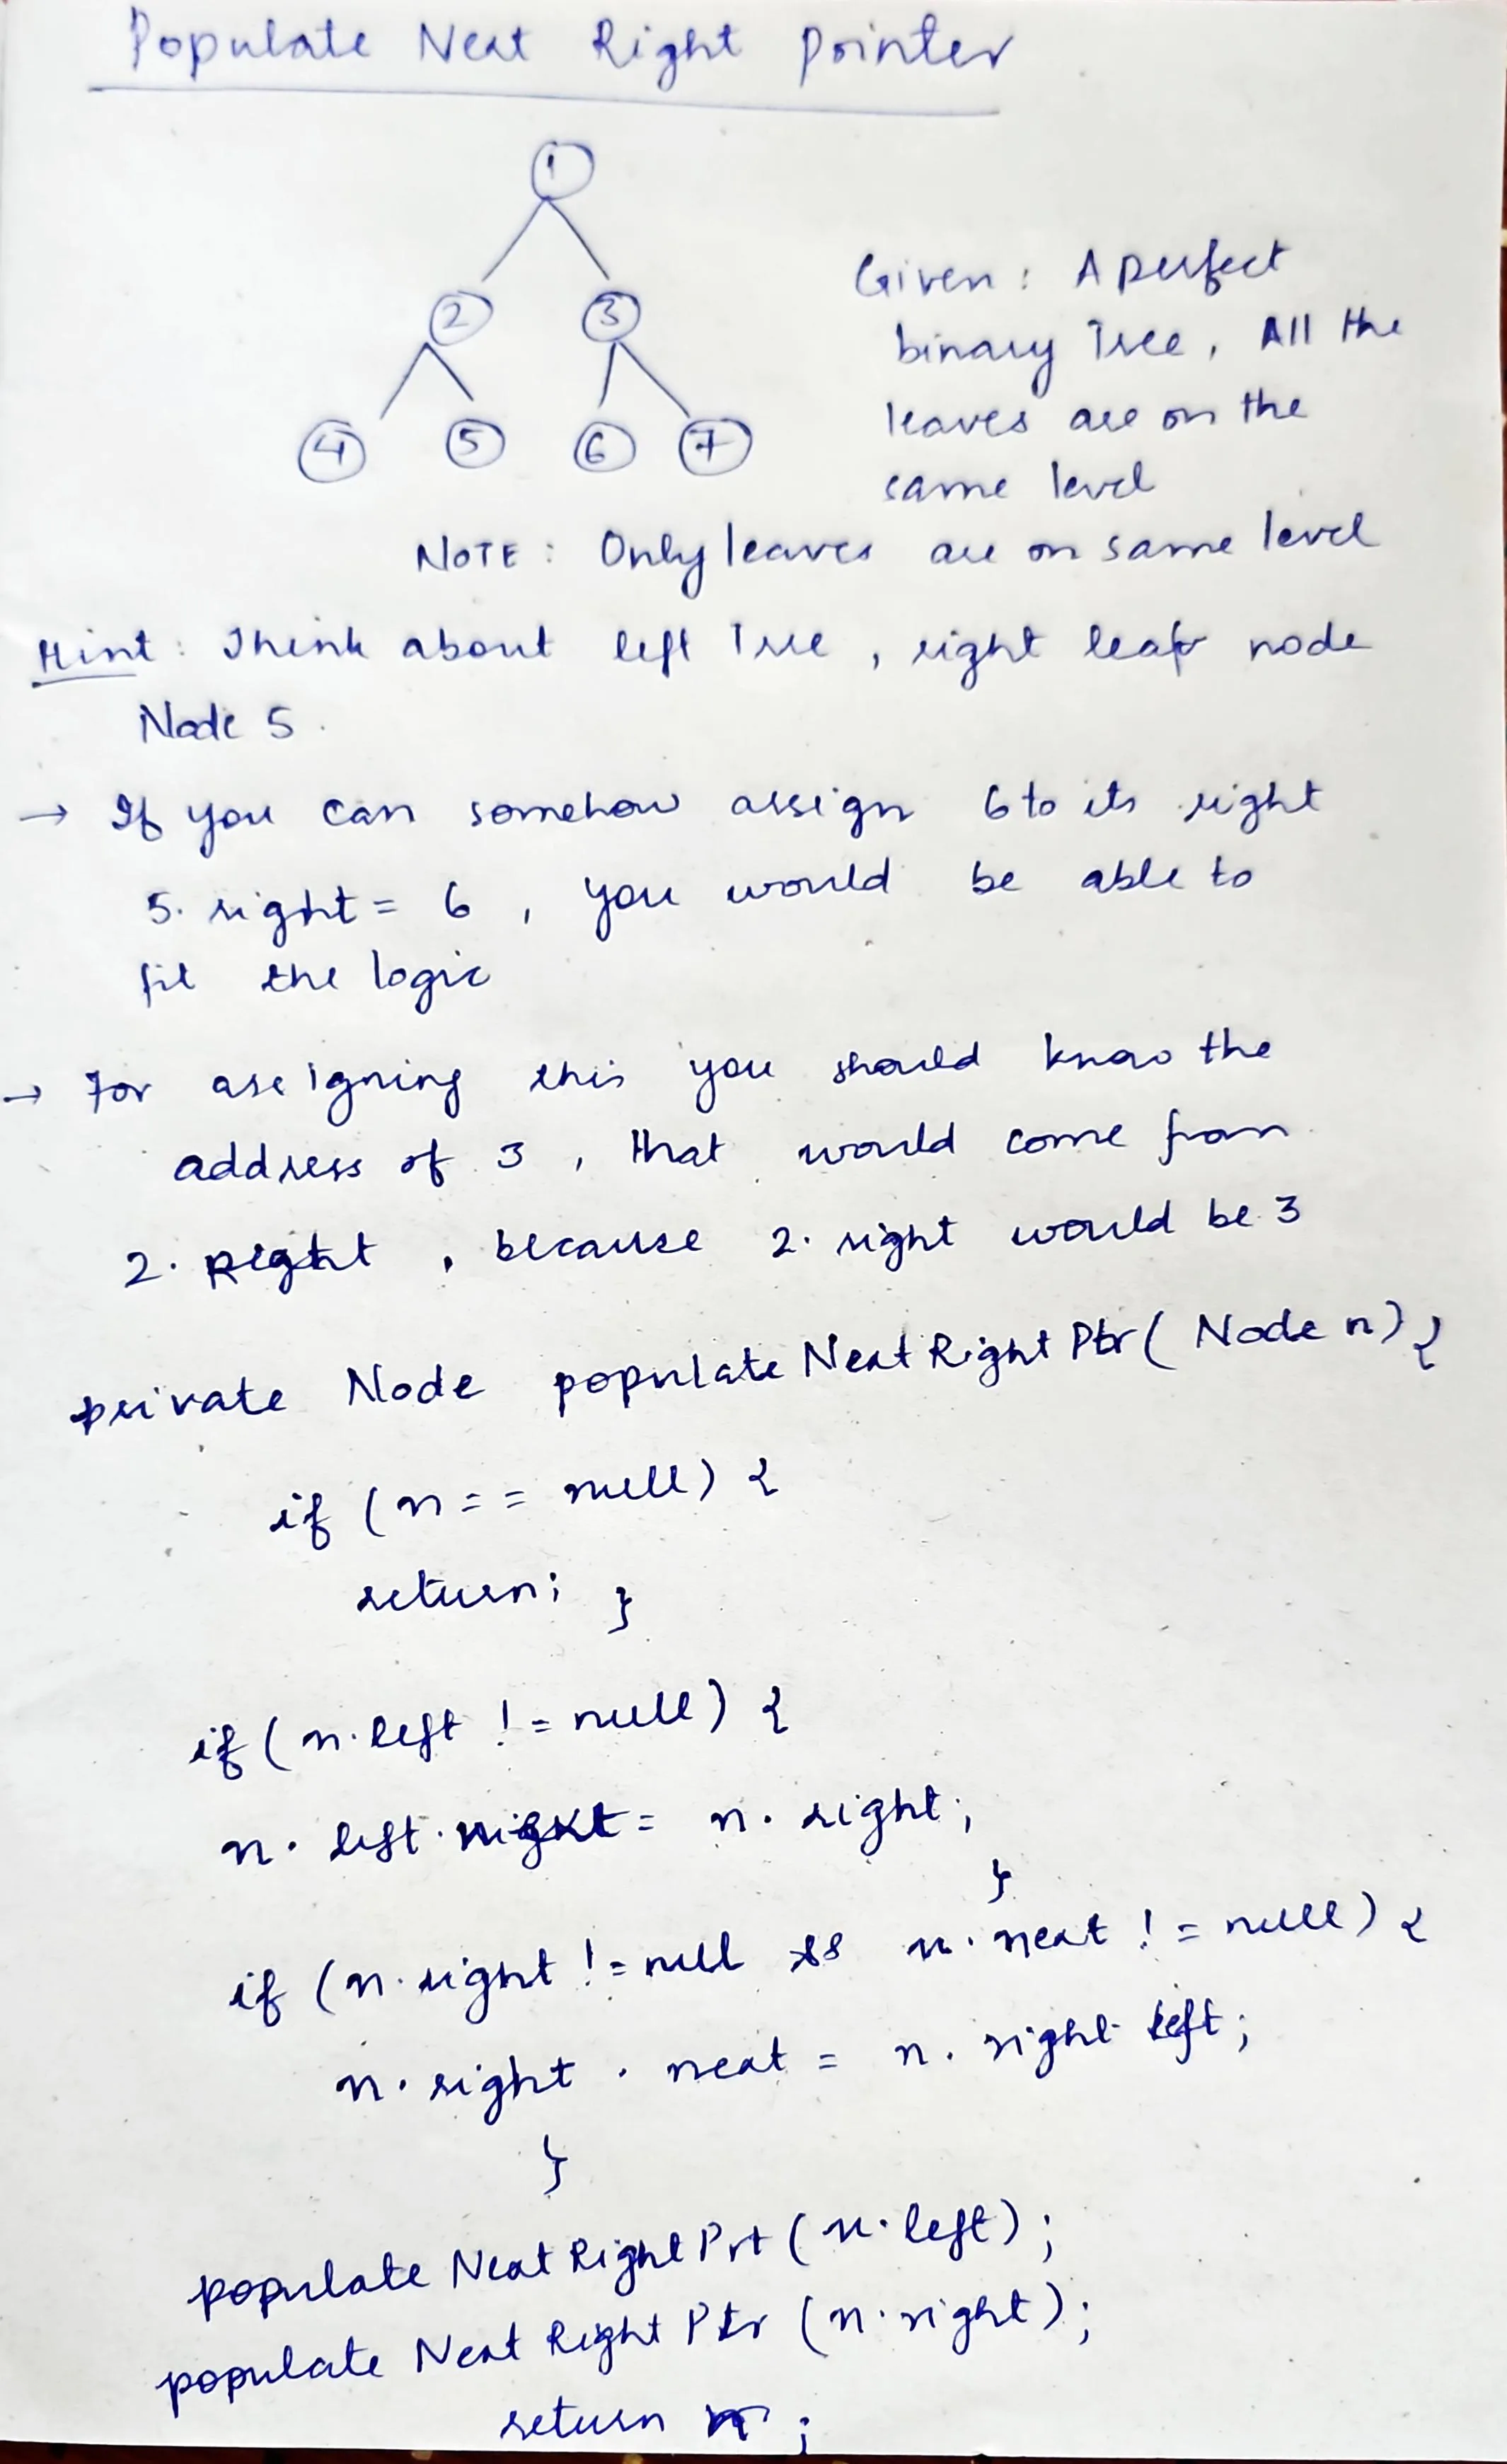 Populate Next Right pointer
1
2 3
4 5 6 7
Given: A perfect
binary Tree, All the
leaves are on the
same level
NOTE: Only leaves are on same level
Hint: Think about left Tree, right leaf node
Node 5.
→ If you can somehow assign 6 to its right
5. right = 6, you would be able to
fit the logic
→ For assigning this you should know the
address of 3, that would come from
2. Right, because 2. right would be 3
private Node populateNextRightPtr( Node n) {
if (n == null) {
return; }
if (n.left != null) {
n. left. right = n. right;
}
if (n. right != null && n. next != null) {
n. right . next = n. right left;
}
populateNextRightPrt (n. left);
populate Next Right Ptr (n. right);
return n;